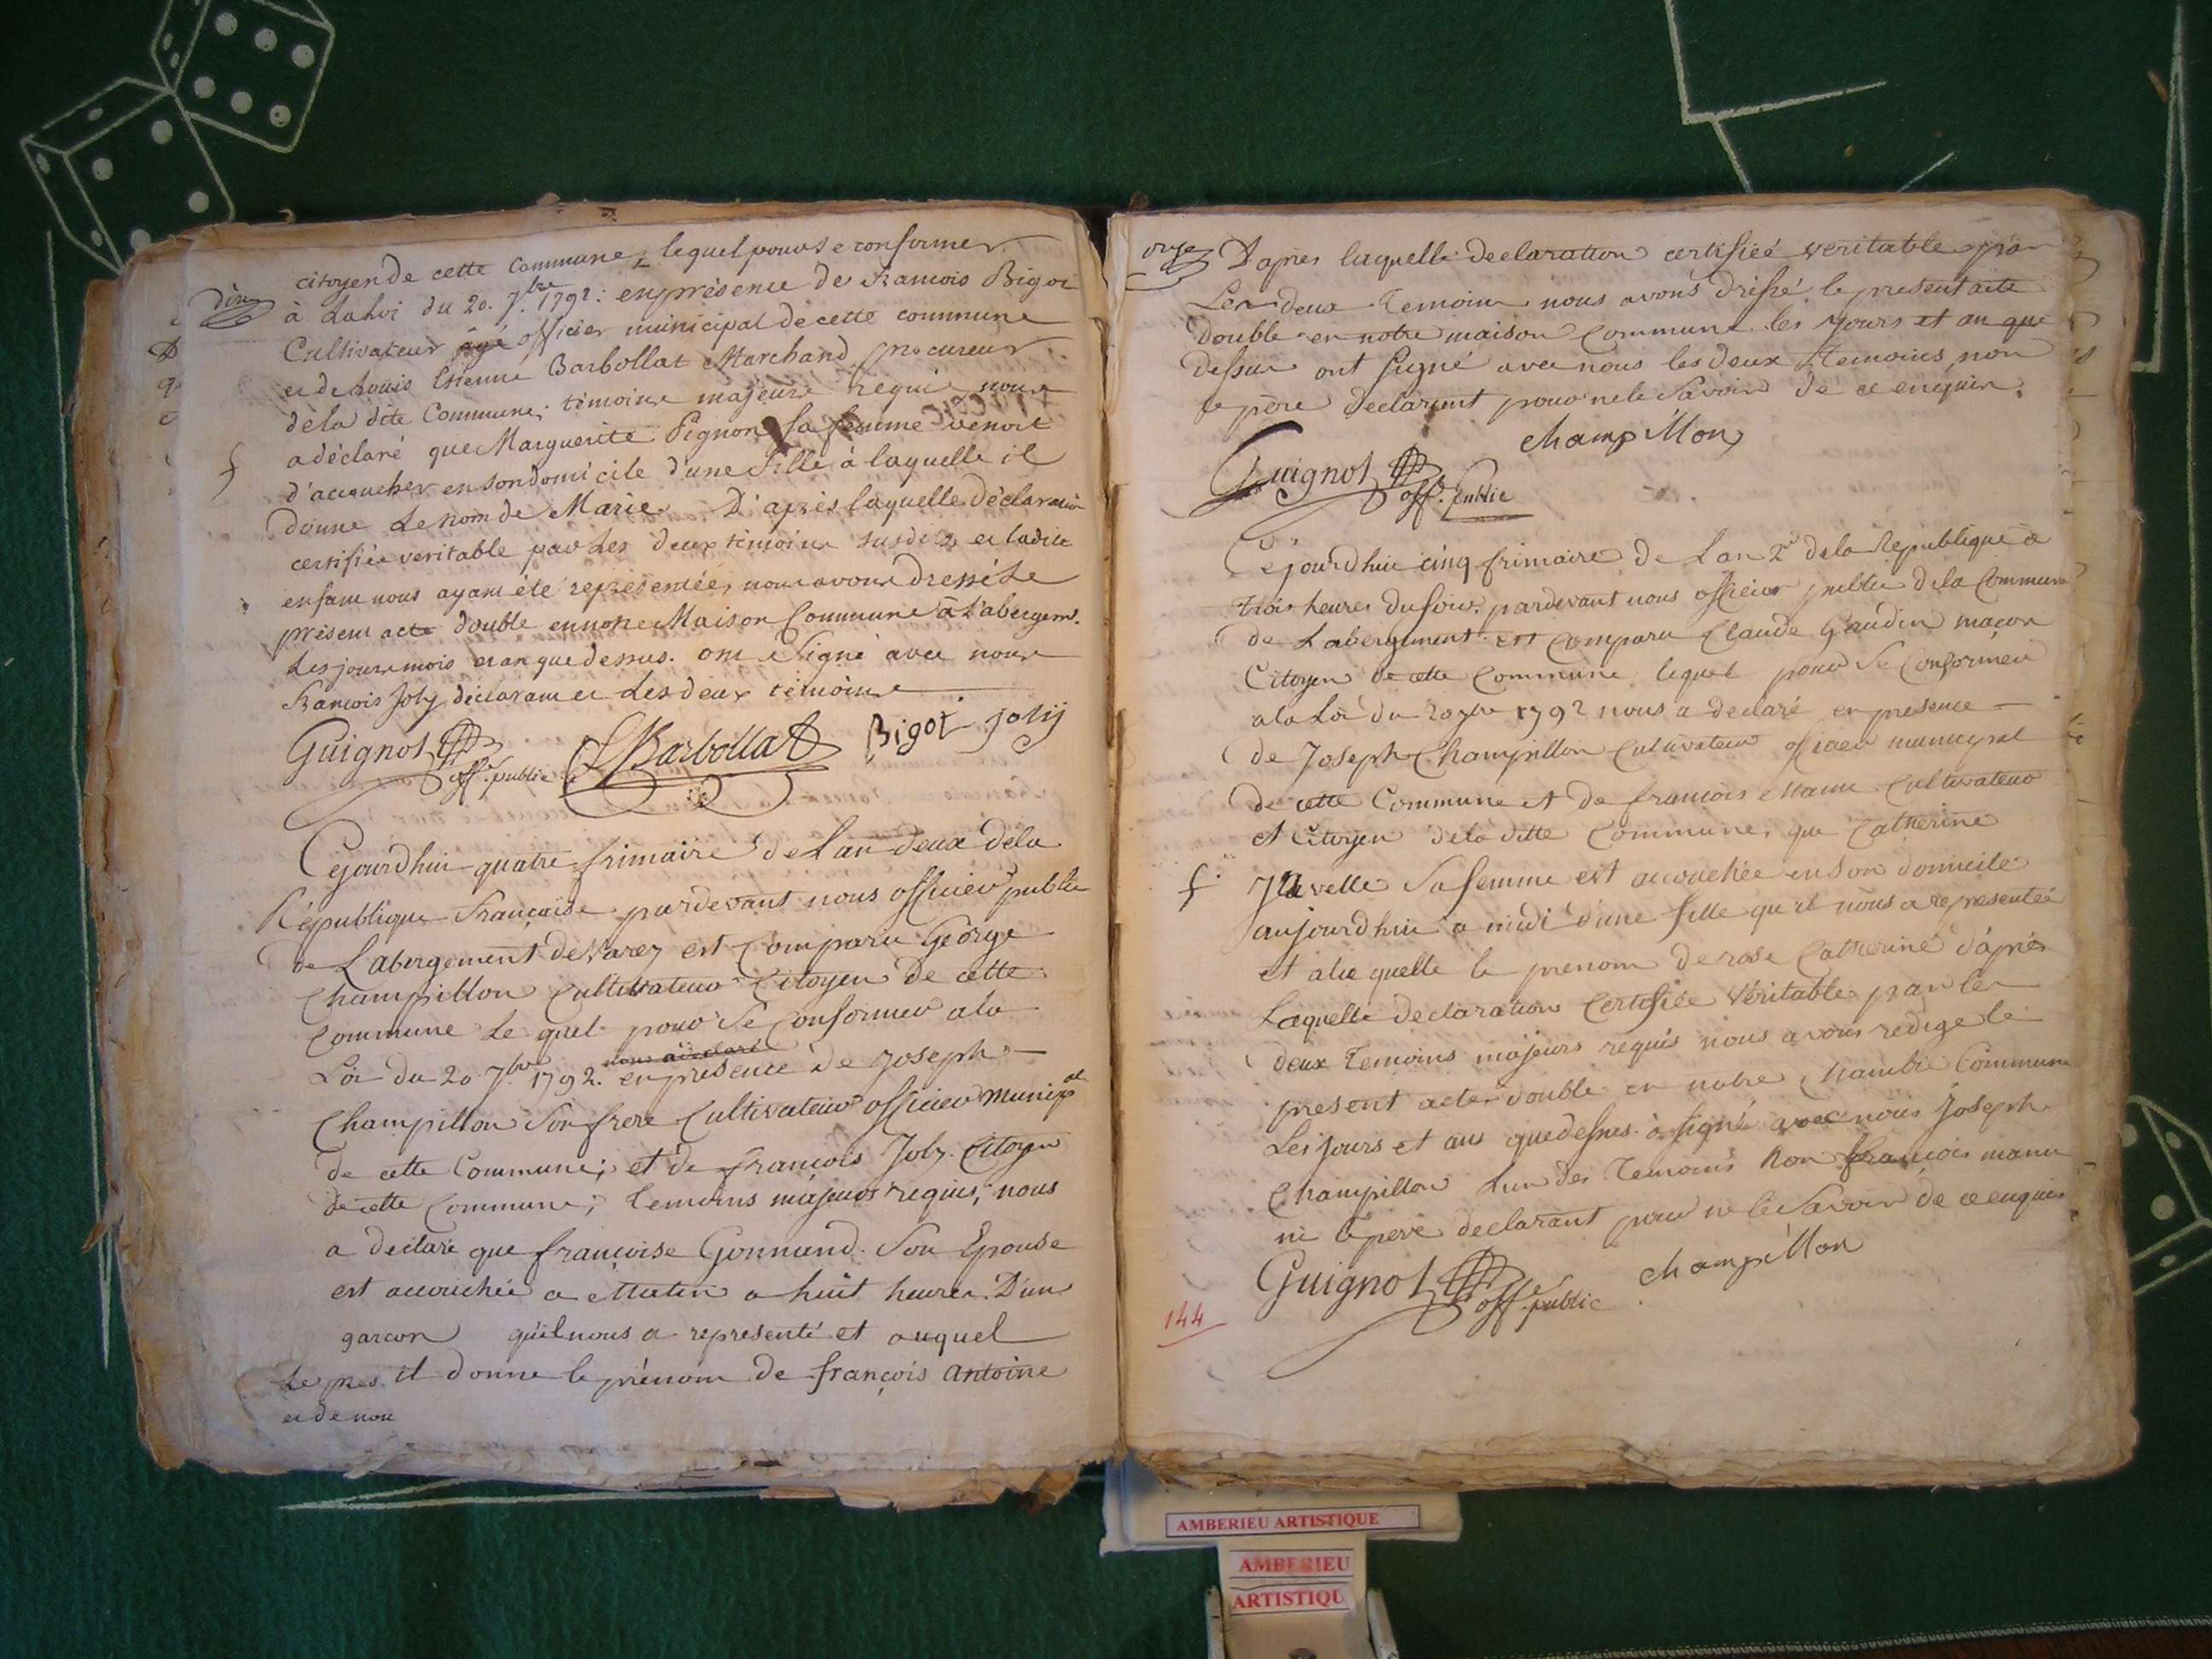 dix
citoyen de cette Commune, lequel pour se conformer
à La Loi du 20. 7.bre 1792: en présence de francois Bigot
Cultivateur agé officier municipal de cette commune
et de Louis Etienne Barbollat Marchand procureur
de la dite Commune; témoins majeurs requis nous
a déclaré que Marguerite Pignon sa femme venoit
f
d'accoucher en son domicile d'une fille à laquelle il
donne Le nom de Marie. D'après laquelle déclaration
certifiée veritable par Les deux témoins susdits et ladite
enfant nous ayant été représentée, nous avons dressé Le
présent acte double en notre Maison Commune à L'abergemt.
Les jours mois et an que dessus. ont Signé avec nous
francois Joly déclarant et Les deux témoins
Guignot off.er public LBarbollat Bigot jolij
Cejourdhui quatre frimaire de Lan deux dela
République française pardevant nous officier public
de Labergement de varey est Comparu George
Champillon Cultivateur Citoyen de cette
Commune Le quel pour Se Conformer ala
nous a declaré
Loi du 20 7.bre 1792. en presence de Joseph
Champillon Son frere Cultivateur officier Municipal
de cette Commune; et de françois Joly Citoyen
de cette Commune; temoins majeurs requis; nous
a declaré que françoise Gonnand Son Epouse
est accouchée a Matin a huit heures D'un
garcon qu'il nous a representé et auquel
Le pres. il donne le prénom de françois Antoine
et de nou
onze
D'apres laquelle declaration certifieé veritable par
Les deux temoins nous avons dressé le present acte
double en notre maison Commune les jours et an que
dessus ont signé avec nous les deux temoins non
le père declarant pour ne le Savoir de ce enquis.
Guignot off.er public champillon
Cejourdhui cinq frimaire de Lan 2e dela République à
trois heures du soir pardevant nous officier public dela Commune
de Labergement est Comparu Claude Gaudin maçon
Citoyen de cette Commune lequel pour Se Conformer
ala Loi du 20 7bre 1792 nous a declaré en presence
de Joseph Champillon Cultivateur officier municipal
de cette Commune et de francois manu Cultivateur
et Citoyen dela ditte Commune, que Catherine
f
Sa femme est accouchée en Son domicile
aujourdhui a midi d'une fille qu'il nous a representée
et ala quelle le prenom de rose Catherine d'après
Laquelle declaration Certifiée Véritable par les
deux temoins majeurs requis nous avons redigé le
present acte double en notre Chambre Commune
Les jours et ans que dessus a signé avec nous Joseph
Champillon Lun des temoins non francois manu
ni le pere declarant pour ne le Savoir de ce enquis
Guignot off.er public champillon
144
AMBERIEU ARTISTIQUE
AMBERIEU
ARTISTIQU